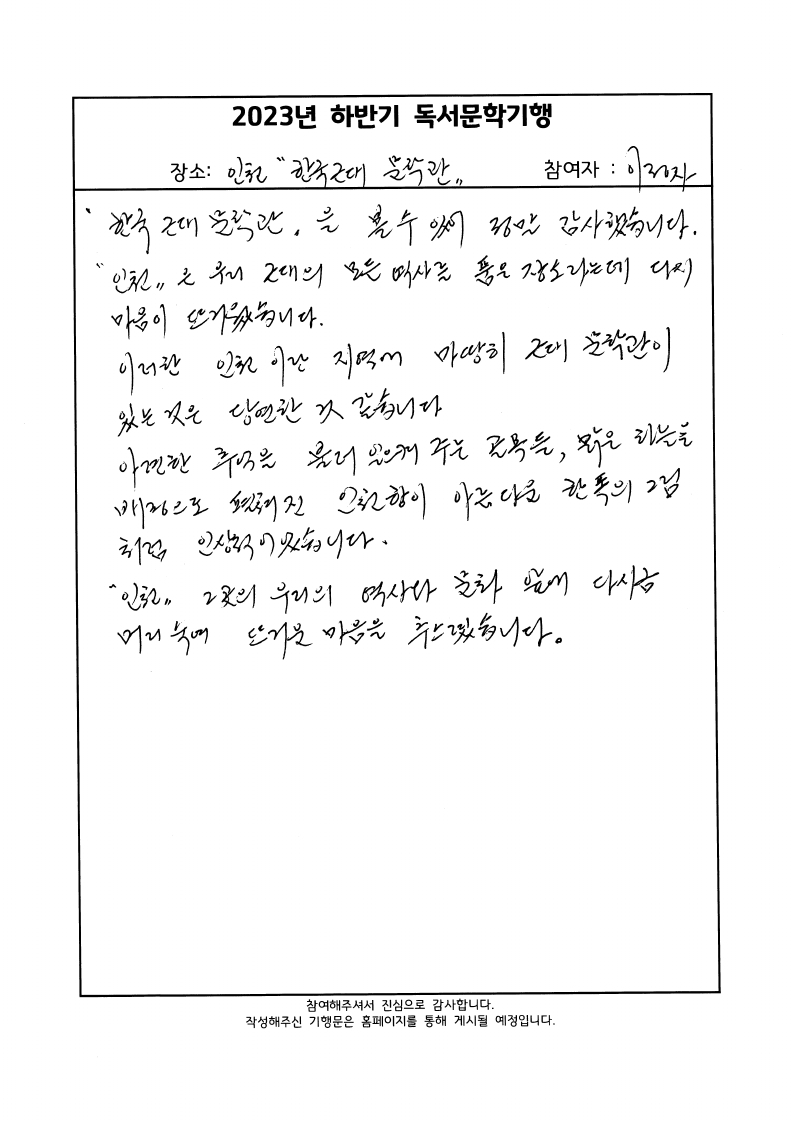 2023년 하반기 독서문학기행
장소: 인천 "한국근대 문학관" 참여자 : 이정자
"한국 근대 문학관"을 볼 수 있어 정말 감사했습니다.
"인천"은 우리 근대의 모든 역사를 품은 장소라는데 다시
마음이 뜨거웠습니다.
이러한 인천이란 지역에 마땅히 근대 문학관이
있는 것은 당연한 것 같습니다
아련한 추억을 불러 일으켜 주는 골목들, 맑은 하늘을
배경으로 펼쳐진 인천항이 아름다운 한폭의 그림
처럼 인상적이었습니다.
"인천" 그곳의 우리의 역사와 문화 앞에 다시금
머리 숙여 뜨거운 마음을 추스렸습니다.
참여해주셔서 진심으로 감사합니다.
작성해주신 기행문은 홈페이지를 통해 게시될 예정입니다.